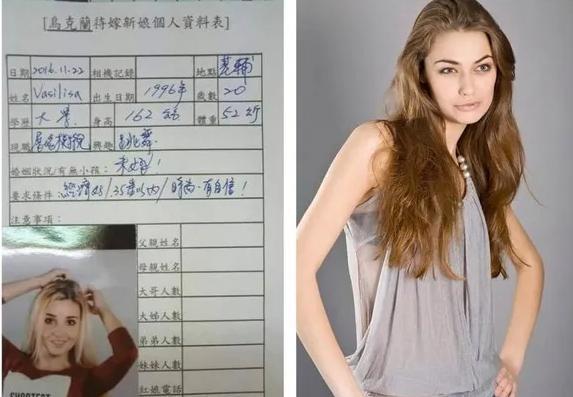 [烏克蘭待嫁新娘個人資料表]
日期 2016.11.22 相機記錄 地點 基輔
姓名 Vasilisa 出生日期 1996年 歲數 20
學歷 大學 身高 162公分 體重 52公斤
現職 興趣 跳舞
婚姻狀況/有無小孩: 未婚!
要求條件: 經濟好/35歲以內/時尚.有自信!
注意事項:
父親姓名
母親姓名
大哥人數
大姊人數
弟弟人數
妹妹人數
紅娘電話